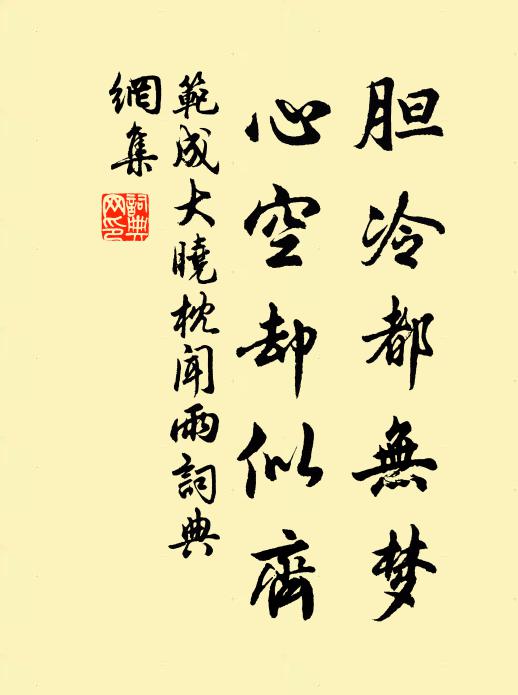 胆冷都無梦
心空却似齋
範成大曉枕聞雨詞典
網集
詞典网印